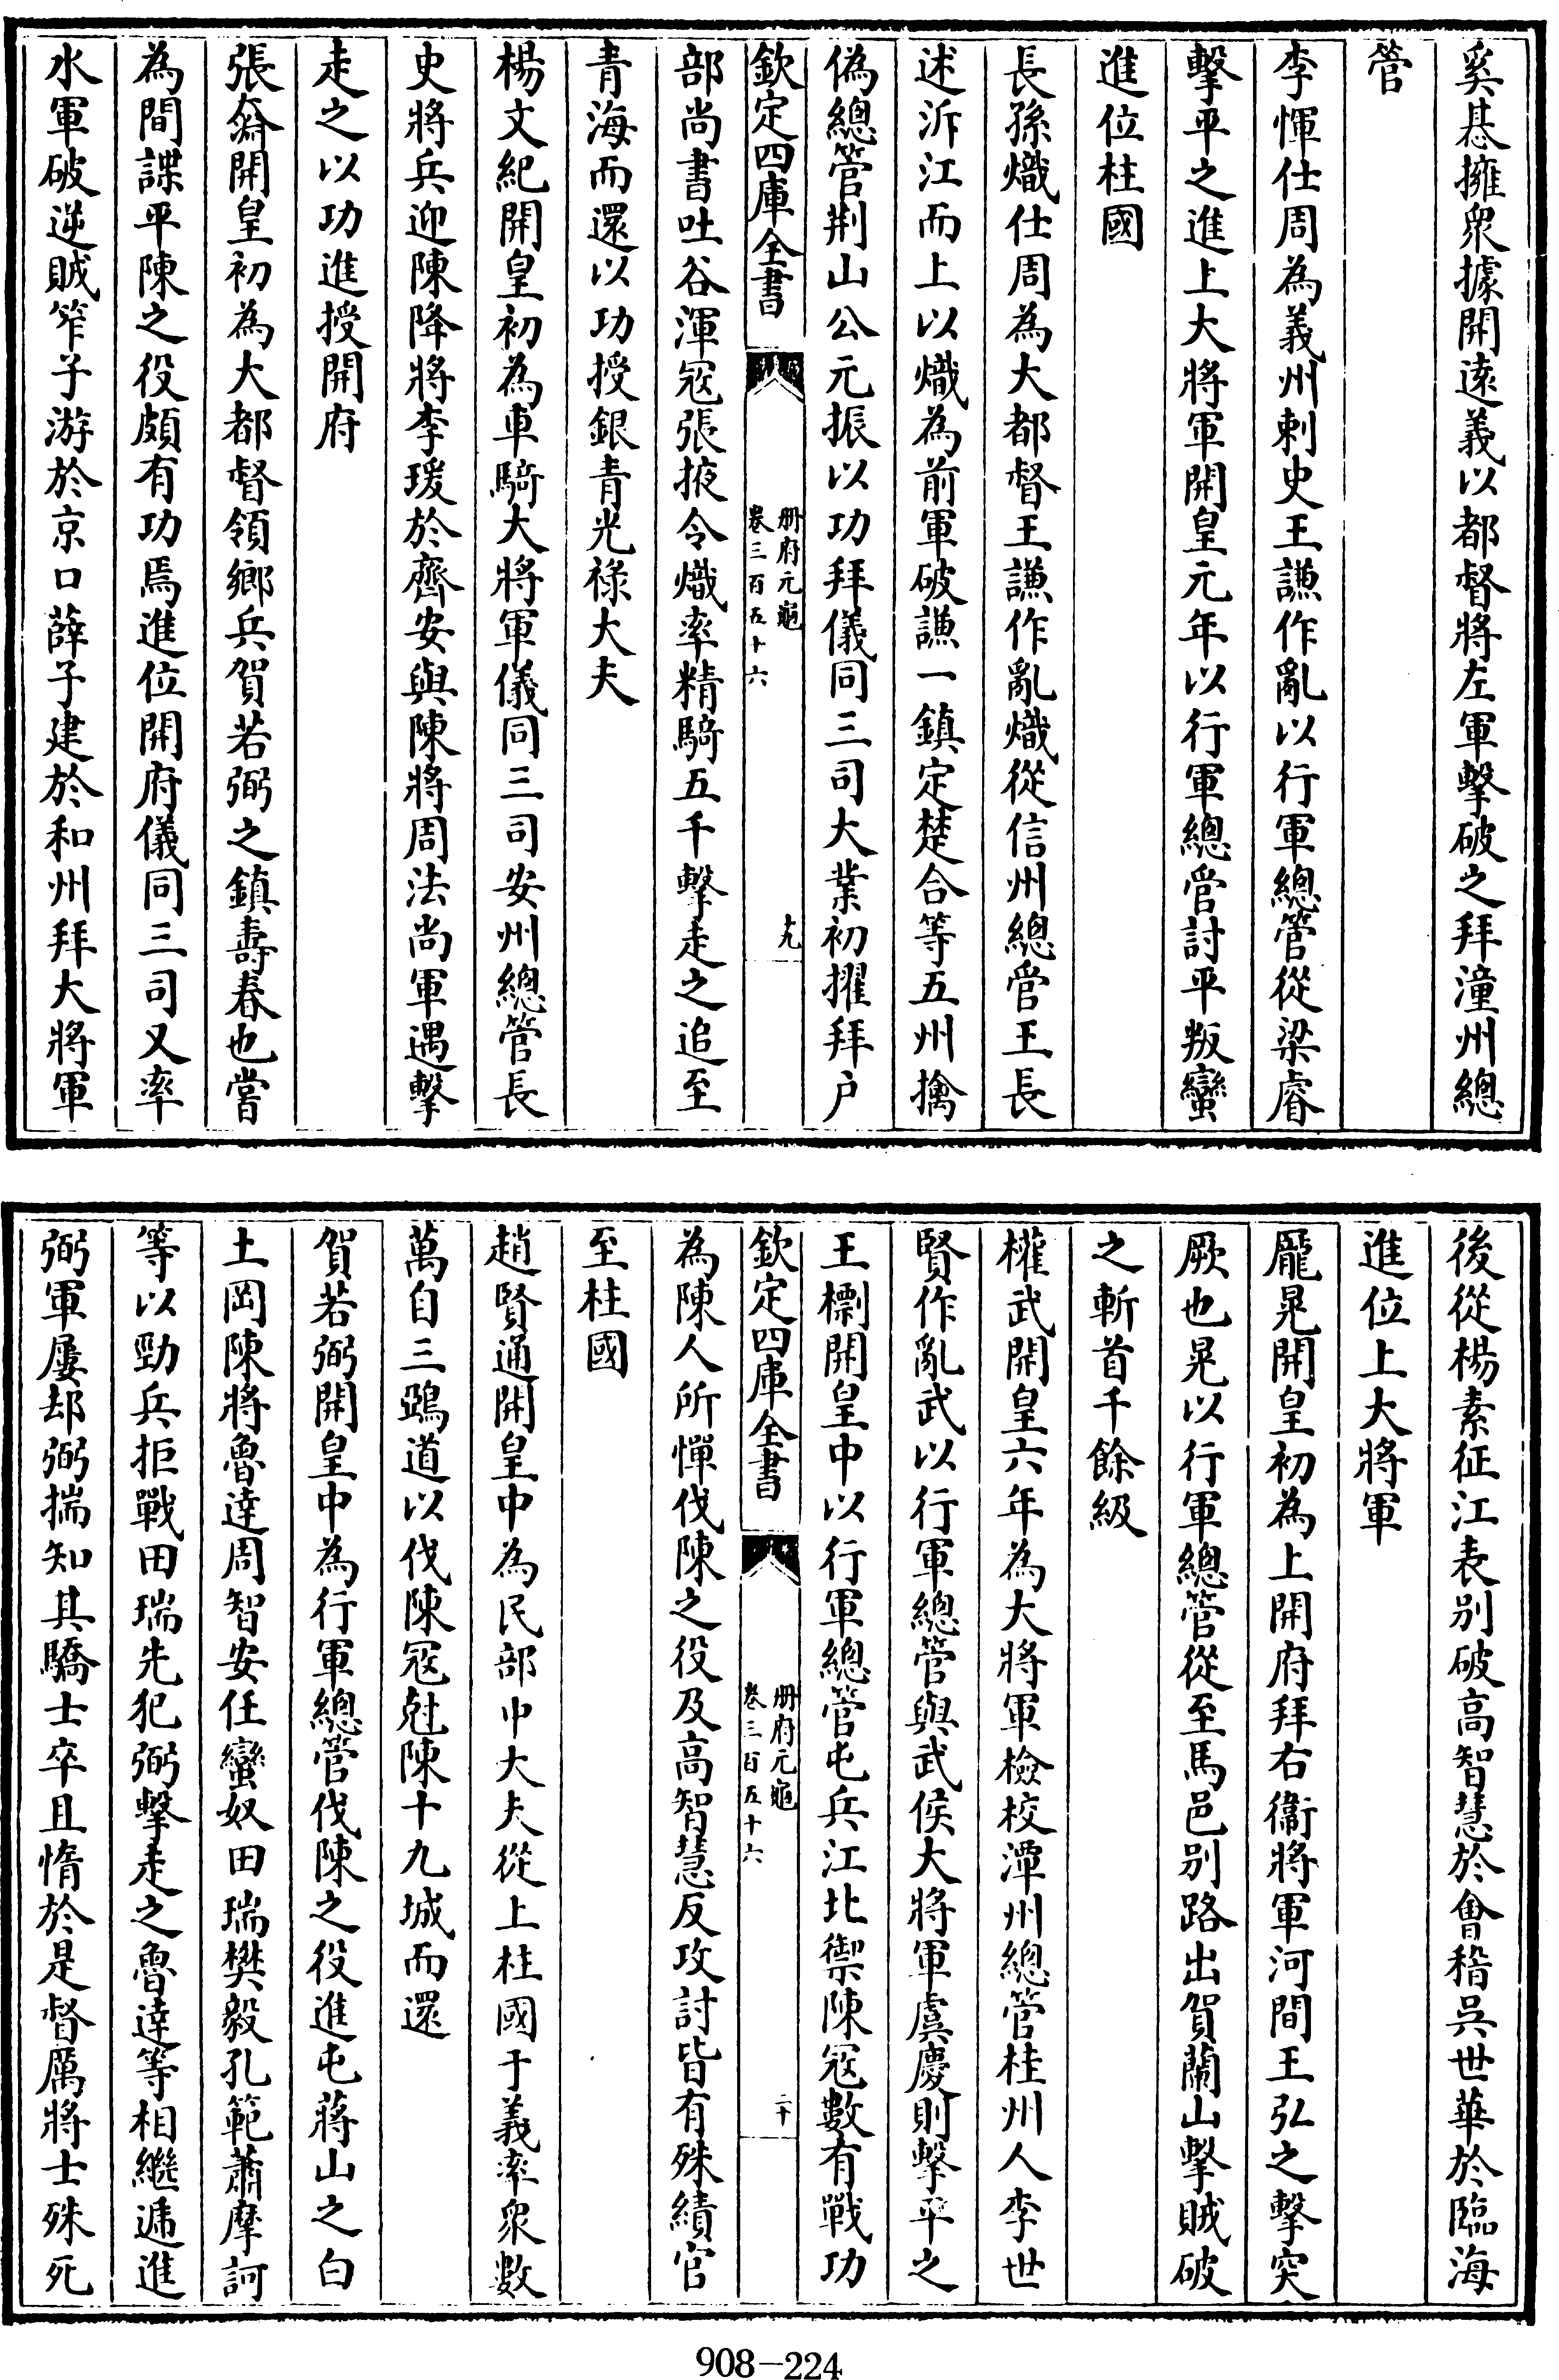 奚惎擁衆據開逺義以都督將左軍擊破之拜潼州總
管
李惲仕周為義州刺史王謙作亂以行軍總管從梁睿
擊平之進上大將軍開皇元年以行軍總管討平叛蠻
進位柱國
長孫熾仕周為大都督王謙作亂熾從信州總管王長
述泝江而上以熾為前軍破謙一鎮定楚合等五州擒
偽總管荆山公元振以功拜儀同三司大業初擢拜户
欽定四庫全書
冊府元龜
卷三百五十六
十九
部尚書吐谷渾冦張掖令熾率精騎五千擊走之追至
青海而還以功授銀青光祿大夫
楊文紀開皇初為車騎大將軍儀同三司安州總管長
史將兵迎陳降將李瑗於齊安與陳將周法尚軍遇擊
走之以功進授開府
張奫開皇初為大都督領鄉兵賀若弼之鎮壽春也嘗
為間諜平陳之役頗有功焉進位開府儀同三司又率
水軍破逆賊笮子游於京口薛子建於和州拜大將軍
後從楊素征江表别破高智慧於會稽吳世華於臨海
進位上大將軍
龐晃開皇初為上開府拜右衞將軍河間王弘之擊突
厥也晃以行軍總管從至馬邑别路出賀蘭山擊賊破
之斬首千餘級
權武開皇六年為大將軍檢校潭州總管桂州人李世
賢作亂武以行軍總管與武侯大將軍虞慶則擊平之
王檦開皇中以行軍總管屯兵江北禦陳冦數有戰功
欽定四庫全書
冊府元龜
卷三百五十六
二十
為陳人所憚伐陳之役及高智慧反攻討皆有殊績官
至柱國
趙賢通開皇中為民部中大夫從上柱國于義率衆數
萬自三鵶道以伐陳冦尅陳十九城而還
賀若弼開皇中為行軍總管伐陳之役進屯蔣山之白
土岡陳將魯達周智安任蠻奴田瑞樊毅孔範蕭摩訶
等以勁兵拒戰田瑞先犯弼擊走之魯達等相繼遞進
弼軍屢却弼揣知其驕士卒且惰於是督厲將士殊死
908-224